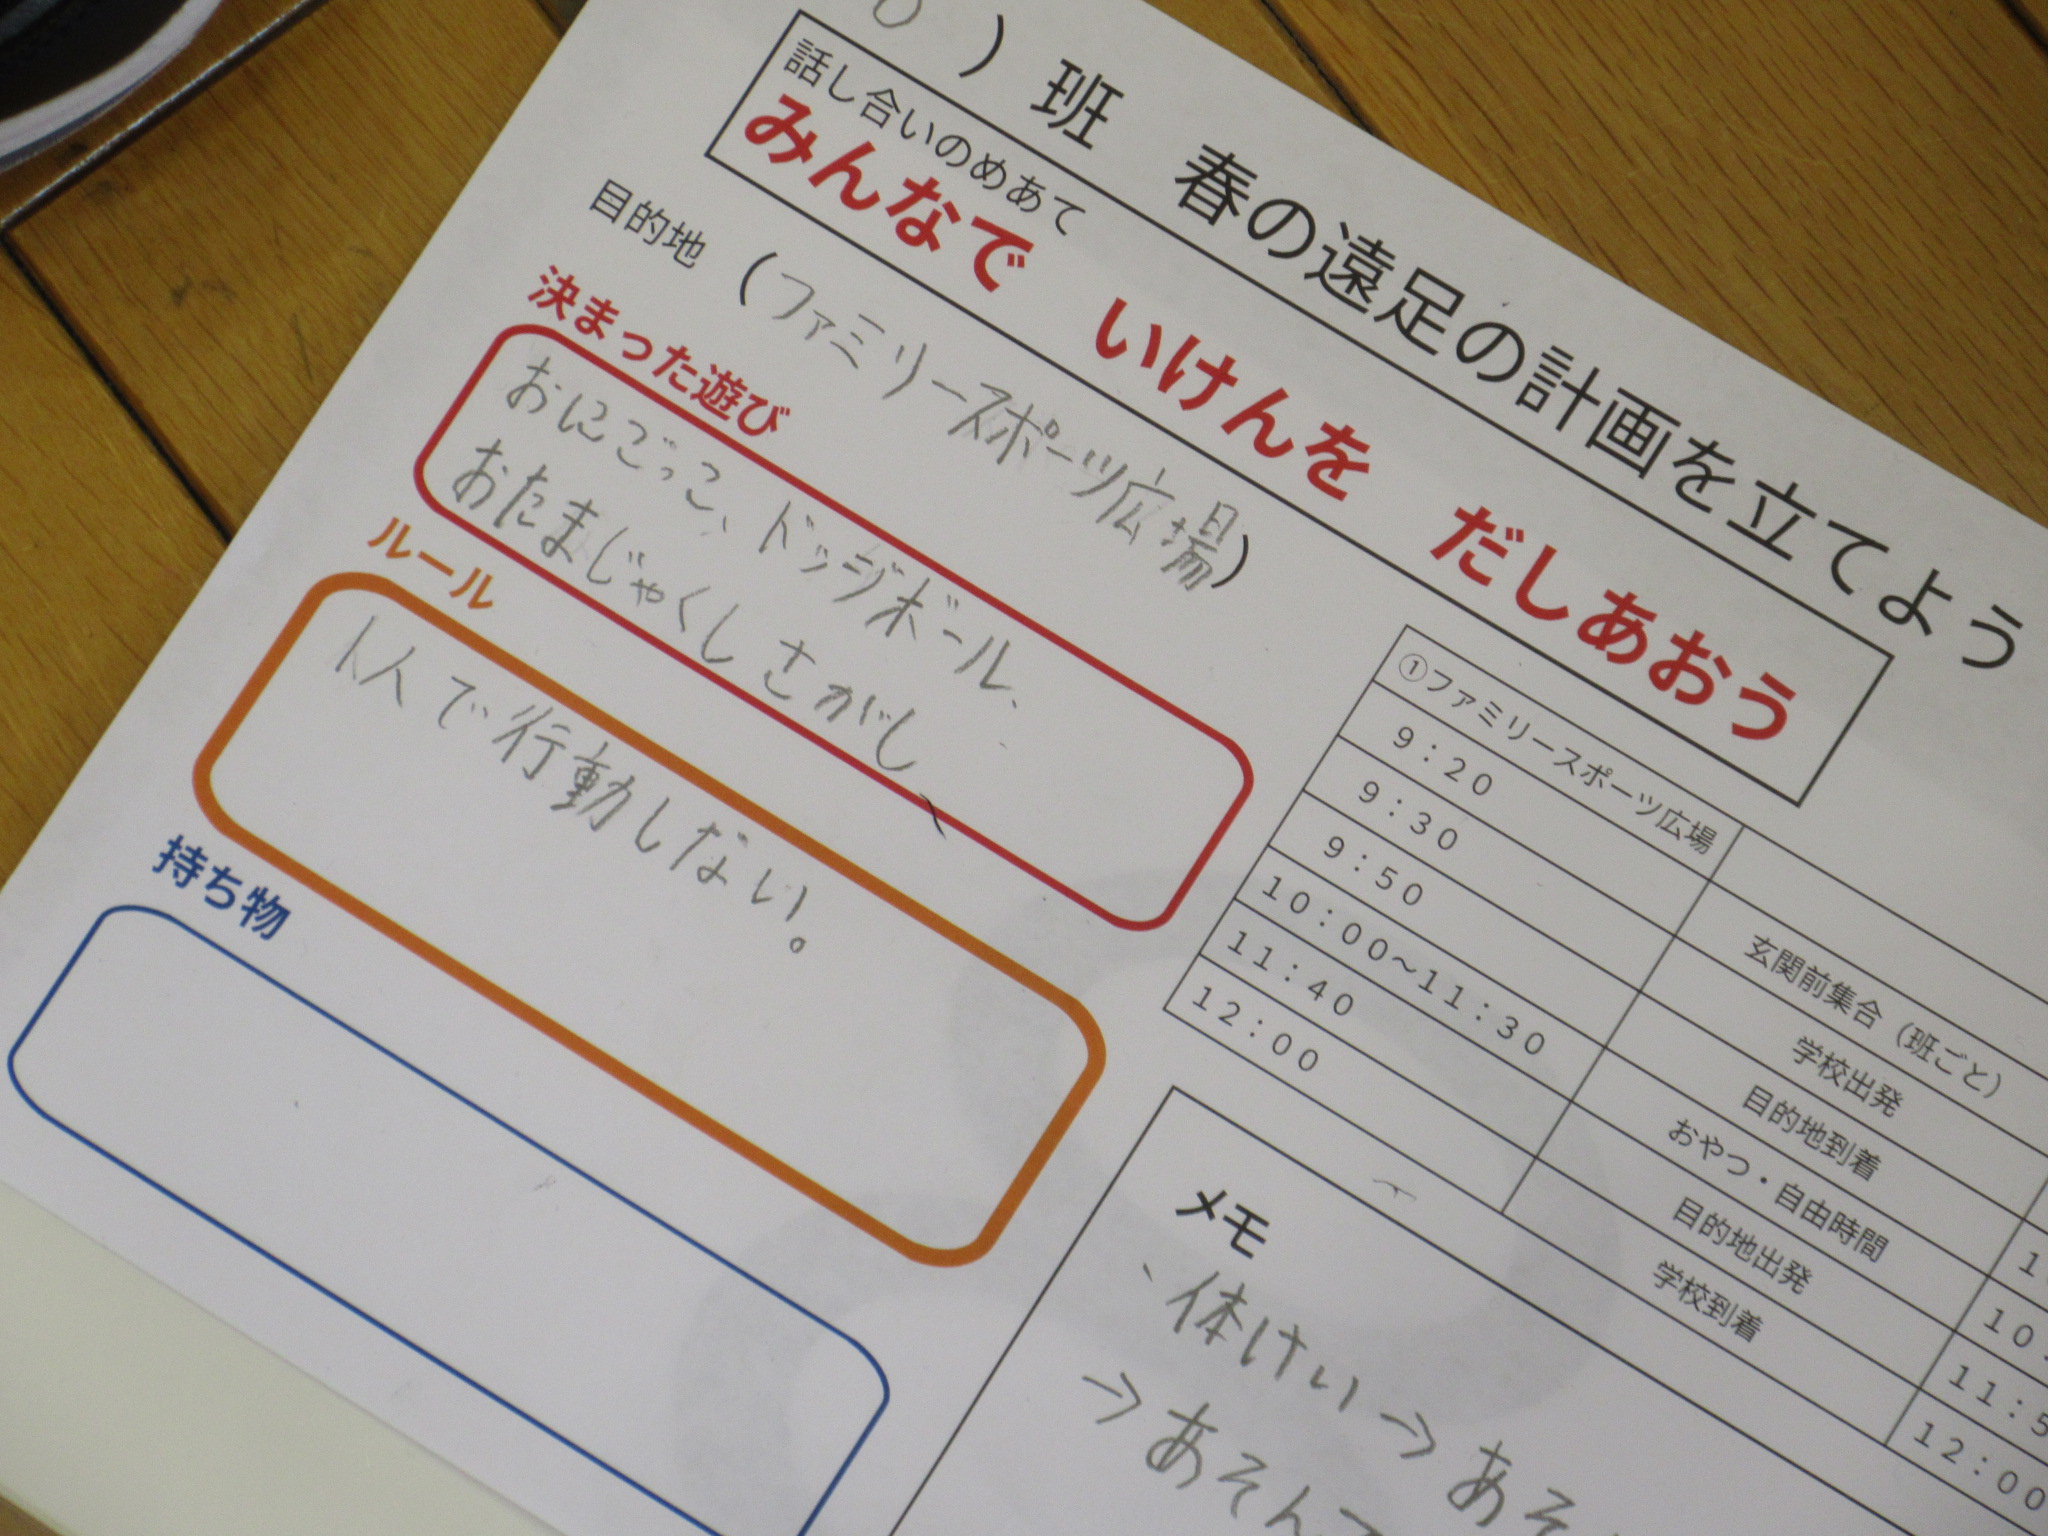 ）班　春の遠足の計画を立てよう
話し合いのめあて
みんなで　いけんを　だしあおう
目的地（ファミリースポーツ広場）
決まった遊び
おにごっこ、ドッジボール、
おたまじゃくしさがし、
ルール
1人で行動しない。
持ち物
①ファミリースポーツ広場
9：20　玄関前集合（班ごと）
9：30　学校出発
9：50　目的地到着
10：00～11：30　おやつ・自由時間
11：40　目的地出発
12：00　学校到着
10
11：5
12：00
メモ
、体けい→あそ
→あそん